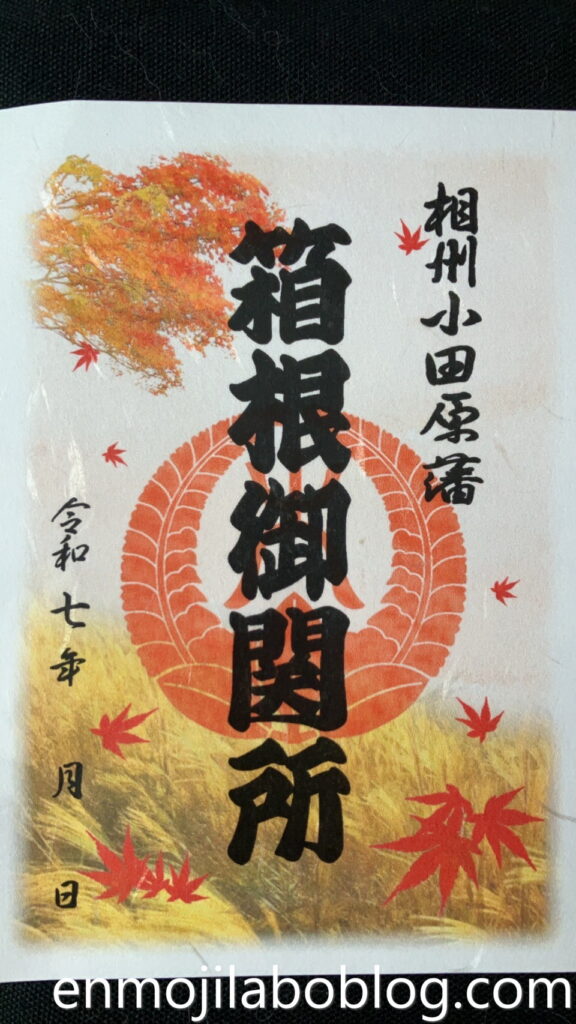 相州小田原藩
箱根御関所
令和七年 月 日
enmojilaboblog.com